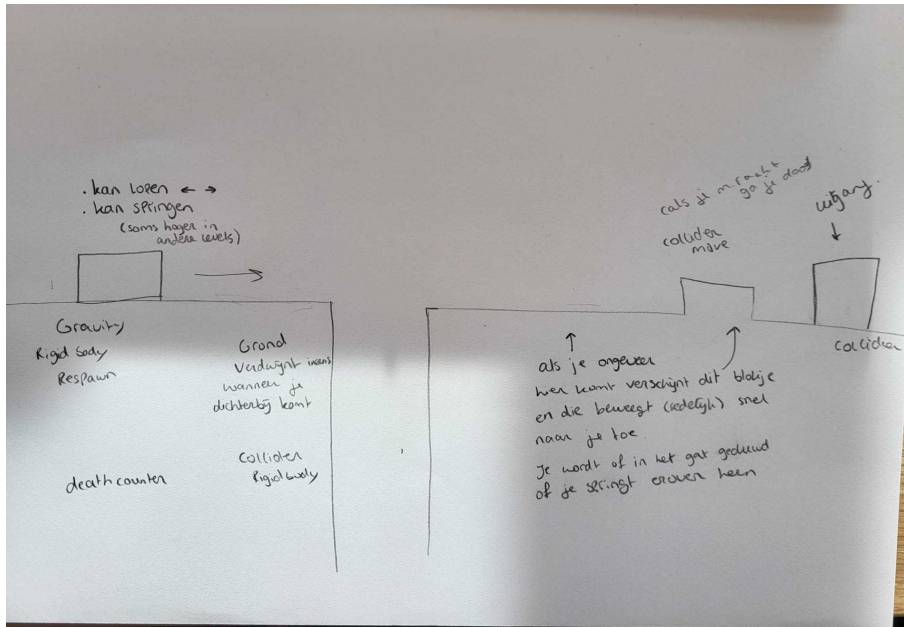 . kan lopen ← →
. kan springen
(soms hoger in
andere levels)
Gravity
Rigid body
Respawn
Grond
verdwijnt ineens
wanneer je
dichterbij komt
death counter
Collider
Rigid body
(als je m raakt
ga je dood
collider
move
uitgang.
↓
collider
↑
als je ongeveer
hier komt verschijnt dit blokje
en die beweegt (redelijk) snel
naar je toe.
Je wordt of in het gat geduwd
of je springt erover heen